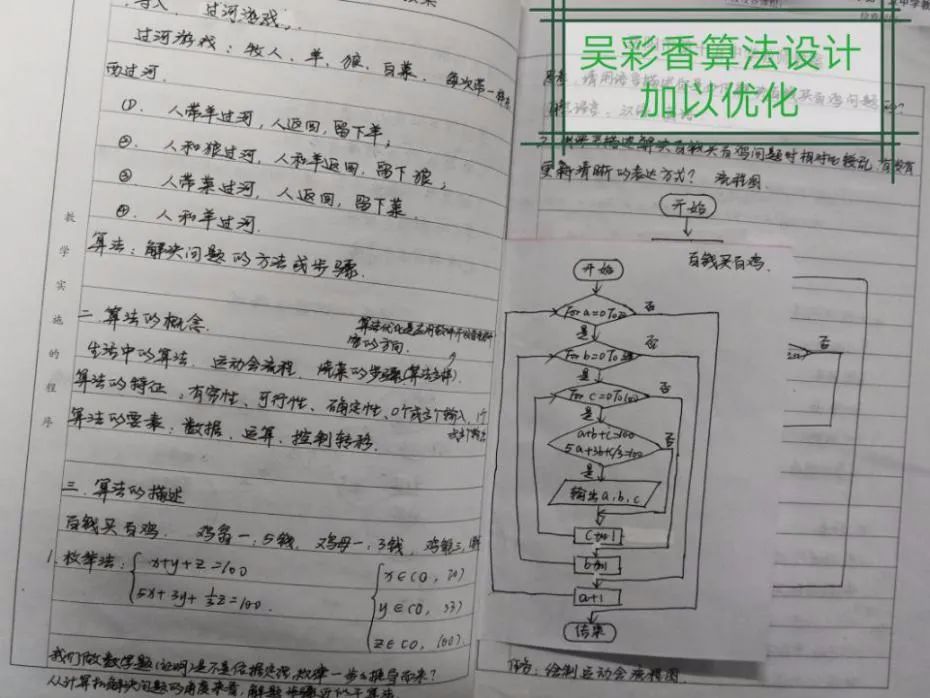 导入 过河游戏:
过河游戏:牧人、羊、狼、白菜. 每次带一样东
西过河.
①. 人带羊过河,人返回,留下羊;
②. 人和狼过河,人和羊返回,留下狼;
③. 人带菜过河,人返回,留下菜.
④. 人和羊过河.
算法:解决问题的方法或步骤.
教学实施的程序
二. 算法的概念.
生活中的算法. 运动会流程、烧菜的步骤(算法多样).
算法的特征:有穷性、可行性、确定性、0个或多个输入、1个
或多个输出
算法的要素:数据、运算、控制转移.
三. 算法的描述
百钱买百鸡. 鸡翁一:5钱, 鸡母一:3钱, 鸡雏三,
1. 枚举法:
x+y+z=100
5x+3y+1/3z=100.
x∈(0, 20)
y∈(0, 33)
z∈(0, 100)
我们做数学题(证明)是不是依据定理,规律一步步推导而来?
从计算机解决问题的角度来看,解题步骤
吴彩香算法设计
加以优化
更新清晰的表达方式? 流程图.
开始
百钱买百鸡.
开始
For a=0 To
否
是
For b=0 To
否
是
For c=0 To 100
否
是
a+b+c=100
5a+3b+c/3=100
否
是
输出a,b,c
c+1
b+1
a+1
结束
否
作业:绘制运动会流程图